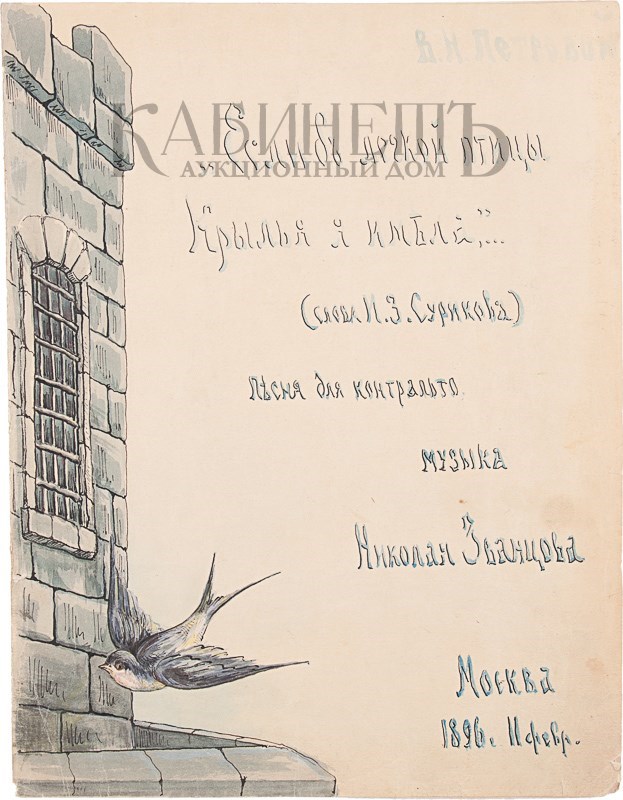 В. Н. Петровой
КАБИНЕТЪ
АУКЦИОННЫЙ ДОМ
„Еслибъ легкой птицы
Крылья я имѣла,"...
(слова И. З. Сурикова)
пѣсня для контральто.
музыка
Николая Званцова
Москва
1896. 11 февр.